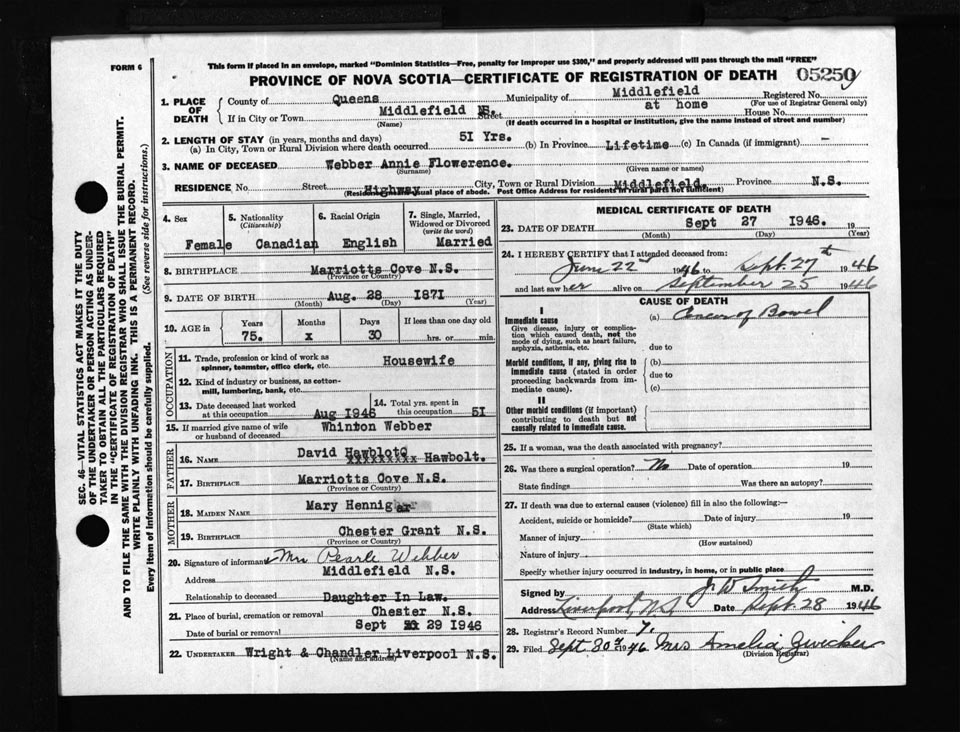 FORM 6
This form if placed in an envelope, marked "Dominion Statistics—Free, penalty for improper use $300," and properly addressed will pass through the mail "FREE"
PROVINCE OF NOVA SCOTIA—CERTIFICATE OF REGISTRATION OF DEATH 05250
1. PLACE OF DEATH County of Queens Municipality of Middlefield Registered No.
(For use of Registrar General only)
If in City or Town Middlefield NS. Street at home House No.
(Name) (If death occurred in a hospital or institution, give the name instead of street and number)
2. LENGTH OF STAY (in years, months and days)
(a) In City, Town or Rural Division where death occurred 51 Yrs. (b) In Province Lifetime (c) In Canada (if immigrant) –
3. NAME OF DECEASED Webber Annie Flowerence.
(Surname) (Given name or names)
RESIDENCE No. Street Highway City, Town or Rural Division Middlefield. Province N.S.
(Residence usual place of abode. Post Office Address for residents in rural parts not sufficient)
4. Sex Female
5. Nationality (Citizenship) Canadian
6. Racial Origin English
7. Single, Married, Widowed or Divorced (write the word) Married
8. BIRTHPLACE Marriotts Cove N.S.
(Province or Country)
9. DATE OF BIRTH Aug. 28 1871
(Month) (Day) (Year)
10. AGE in Years 75. Months x Days 30 If less than one day old hrs. or min.
OCCUPATION
11. Trade, profession or kind of work as spinner, teamster, office clerk, etc. Housewife
12. Kind of industry or business, as cotton-mill, lumbering, bank, etc.
13. Date deceased last worked at this occupation Aug 1946
14. Total yrs. spent in this occupation 51
15. If married give name of wife or husband of deceased Whinton Webber
FATHER
16. NAME David Hawblotd xxxxxxxxx Hawbolt.
17. BIRTHPLACE Marriotts Cove N.S.
(Province or Country)
MOTHER
18. MAIDEN NAME Mary Hennigar
19. BIRTHPLACE Chester Grant N.S.
(Province or Country)
20. Signature of informant Mrs Pearle Webber
Address Middlefield N.S.
Relationship to deceased Daughter In Law.
21. Place of burial, cremation or removal Chester N.S.
Date of burial or removal Sept 29 1946
22. UNDERTAKER Wright & Chandler Liverpool N.S.
(Name and address)
MEDICAL CERTIFICATE OF DEATH
23. DATE OF DEATH Sept 27 1946. 19
(Month) (Day) (Year)
24. I HEREBY CERTIFY that I attended deceased from:
June 22nd 1946 to Sept. 27th 1946
and last saw her alive on September 25 1946
CAUSE OF DEATH
I
Immediate cause (a) Cancer of Bowel
Give disease, injury or complication which caused death, not the mode of dying, such as heart failure, asphyxia, asthenia, etc.
due to
Morbid conditions, if any, giving rise to immediate cause (stated in order proceeding backwards from immediate cause).
(b)
due to
(c)
II
Other morbid conditions (if important) contributing to death but not causally related to immediate cause.
25. If a woman, was the death associated with pregnancy?
26. Was there a surgical operation? No Date of operation 19
State findings Was there an autopsy?
27. If death was due to external causes (violence) fill in also the following:—
Accident, suicide or homicide? Date of injury 19
(State which)
Manner of injury
(How sustained)
Nature of injury
Specify whether injury occurred in industry, in home, or in public place
Signed by J. W Smith M.D.
Address Liverpool, N.S Date Sept. 28 1946
28. Registrar's Record Number 7.
29. Filed Sept. 30th 1946 Mrs Amelia Zwicker
(Division Registrar)
SEC. 46—VITAL STATISTICS ACT MAKES IT THE DUTY
OF THE UNDERTAKER OR PERSON ACTING AS UNDER-
TAKER TO OBTAIN ALL THE PARTICULARS REQUIRED
IN THE "CERTIFICATE OF REGISTRATION OF DEATH"
AND TO FILE THE SAME WITH THE DIVISION REGISTRAR WHO SHALL ISSUE THE BURIAL PERMIT.
WRITE PLAINLY WITH UNFADING INK. THIS IS A PERMANENT RECORD.
Every item of information should be carefully supplied. (See reverse side for instructions.)